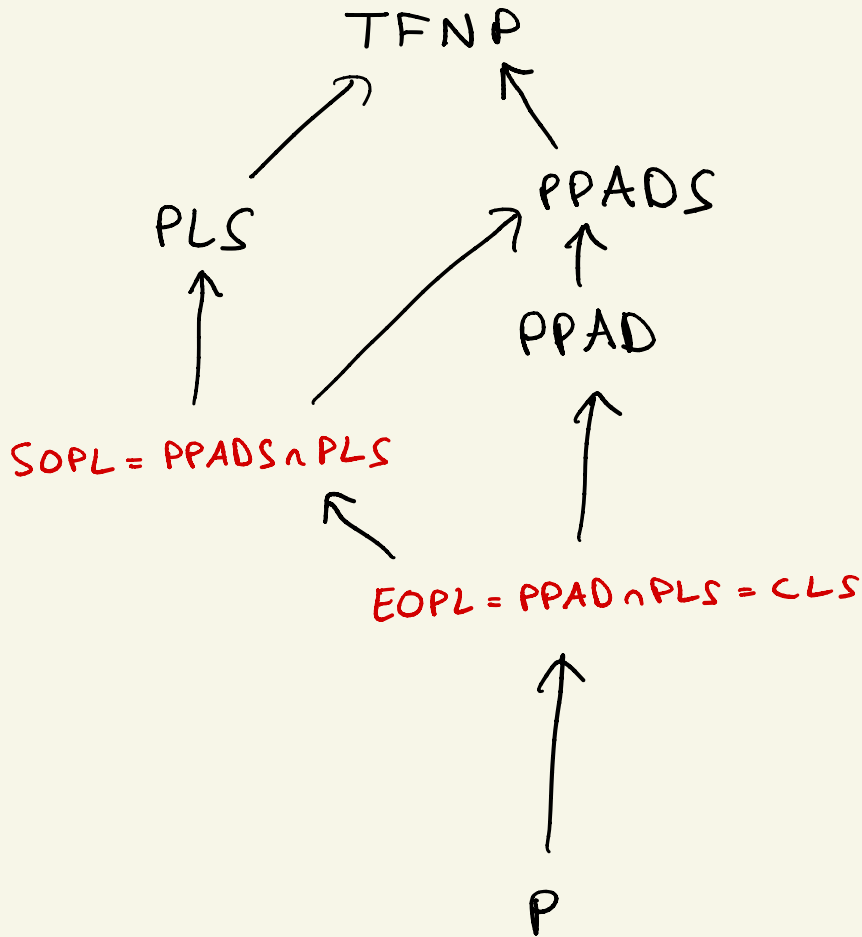 TFNP
PPADS
PLS
PPAD
SOPL = PPADS ∩ PLS
EOPL = PPAD ∩ PLS = CLS
P